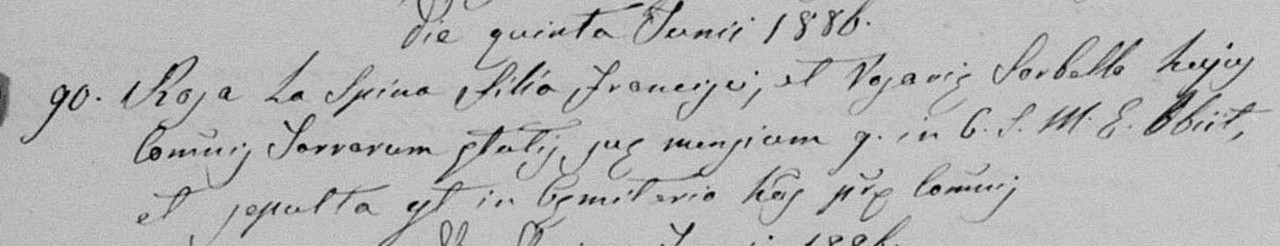 Die quinta Junii 1886.
90. Rosa La Spina filia Francisci, et Rosariæ Sorbello hujus
Comũnis Terrarum ætatis suæ mensium 9. in C. S. M. E. Obiit,
et sepulta est in Cæmiterio hũjs Comũnis
Junii 1886.